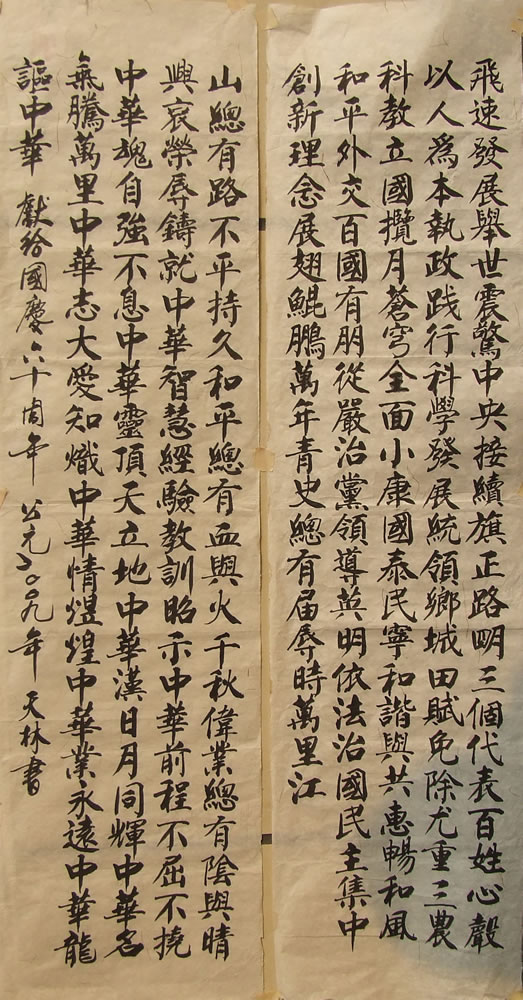 飛速發展舉世震驚中央接續旗正路明三個代表百姓心聲
以人爲本執政践行科學發展統領鄉城田賦免除尤重三農
科教立國攬月蒼穹全面小康國泰民寧和諧與共惠暢和風
和平外交百國有朋從嚴治黨領導英明依法治國民主集中
創新理念展翅鯤鵬萬年青史總有屆辱時萬里江
山總有路不平持久和平總有血與火千秋偉業總有陰與晴
興哀榮辱鑄就中華智慧經驗教訓昭示中華前程不屈不撓
中華魂自強不息中華靈頂天立地中華漢日月同輝中華名
氣騰萬里中華志大愛知熾中華情煜煌中華業永遠中華龍
謳中華 獻給國慶六十周年 公元二〇〇九年 天林書